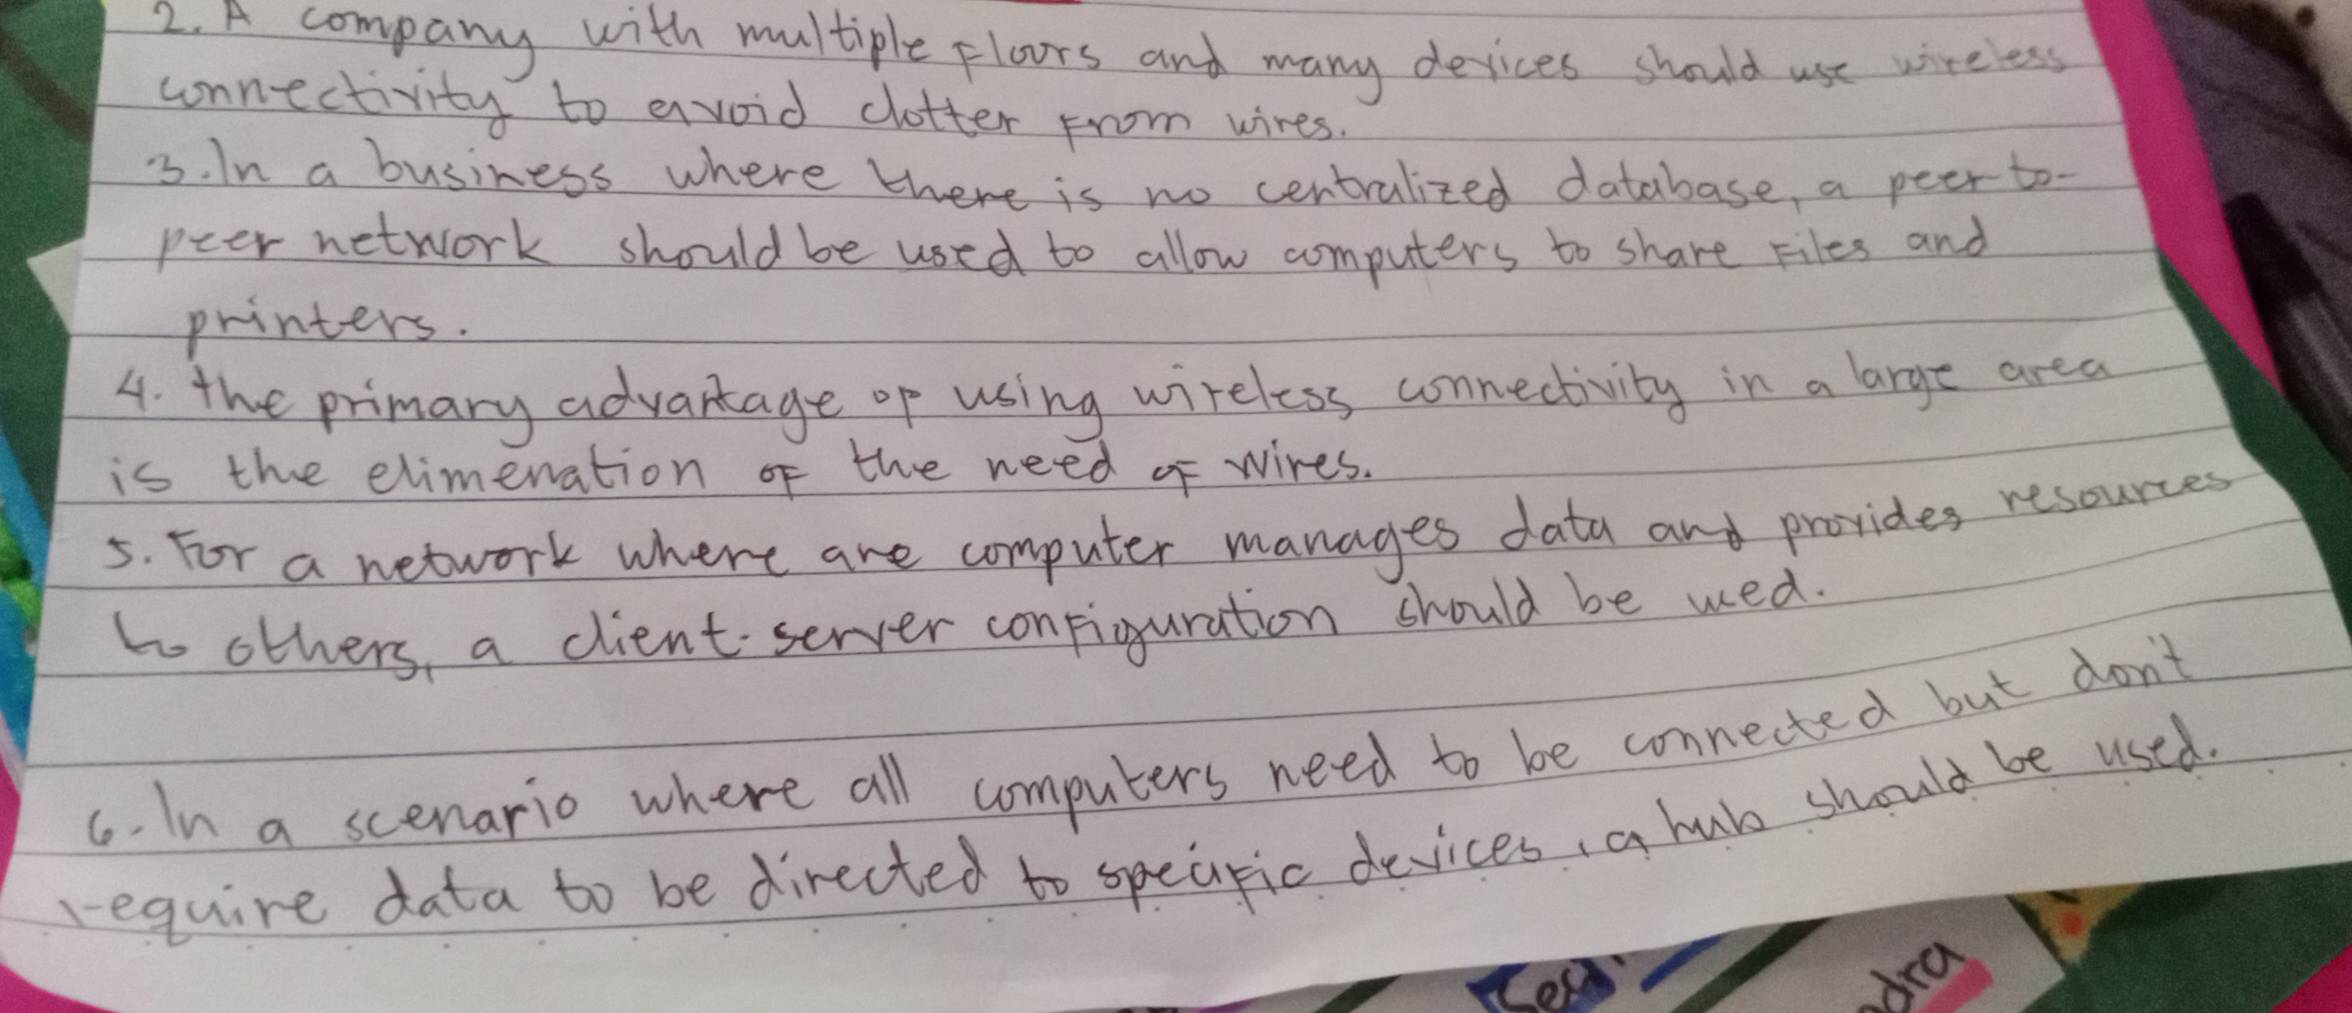 2. A company with multiple floors and many devices should use wireless
connectivity to avoid clotter from wires.
3. In a business where there is no centralized database, a peer to-
peer network should be used to allow computers to share files and
printers.
4. the primary advantage of using wireless connectivity in a large area
is the elimenation of the need of wires.
5. For a network where are computer manages data and provides resources
to others, a client-server configuration should be used.
6. In a scenario where all computers need to be connected but don't
require data to be directed to specific devices, a hub should be used.
dra